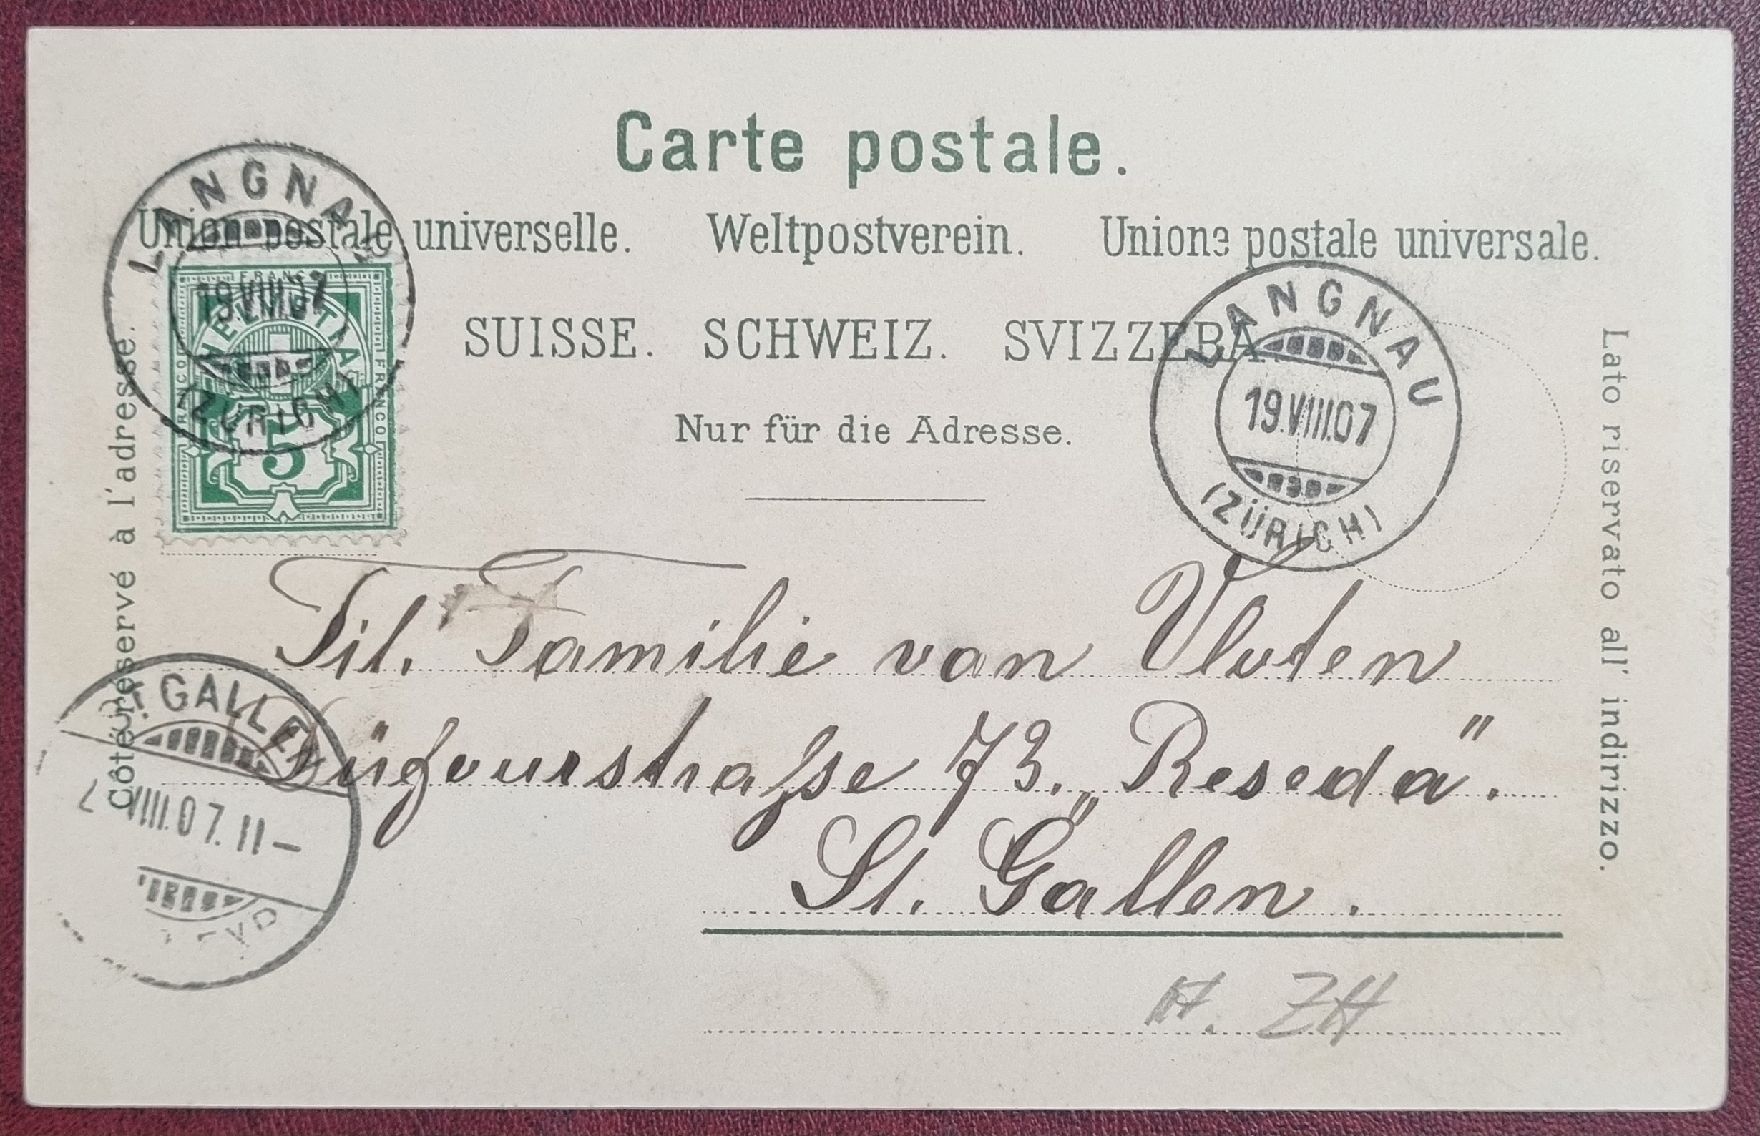 Carte postale.
Union postale universelle. Weltpostverein. Unione postale universale.
SUISSE. SCHWEIZ. SVIZZERA
Nur für die Adresse.
Côté réservé à l'adresse.
Lato riservato all' indirizzo.
LANGNAU
19.VIII.07
(ZÜRICH)
FRANCO
HELVETIA
FRANCO
FRANCO
5
LANGNAU
19.VIII.07
(ZÜRICH)
ST. GALLEN
VIII.07.11–
Tit. Familie van Vloten
73. „Reseda".
St. Gallen.
ZH